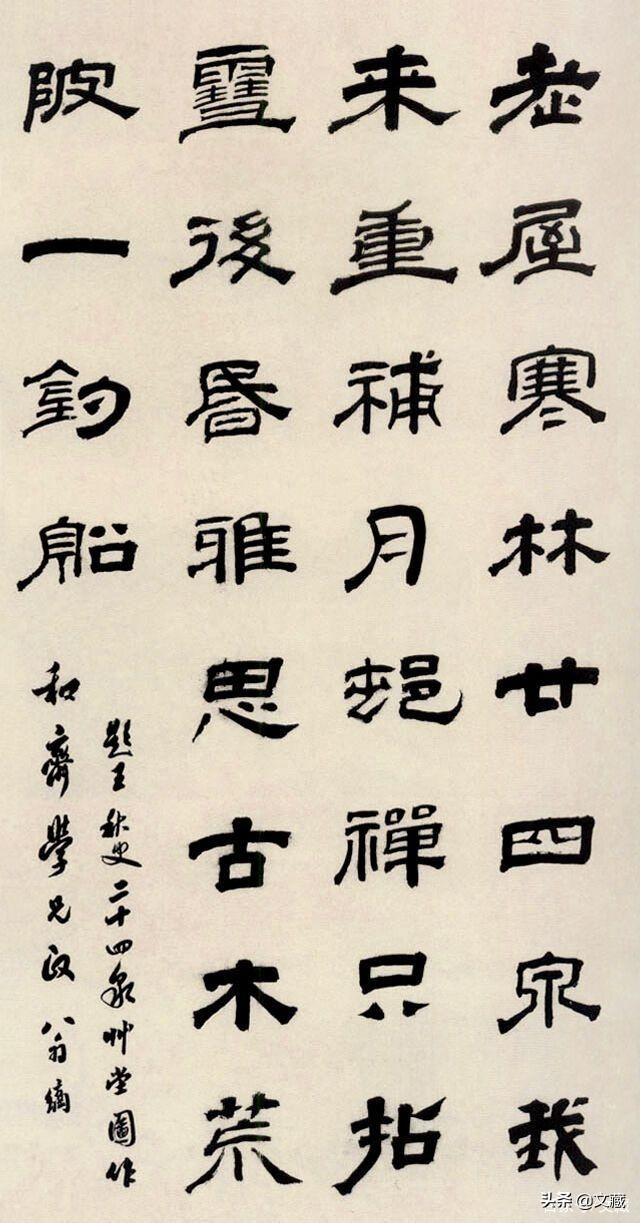 老屋寒林廿四泉我
来重補月禪只拈
雪後昏雅思古木荒
陂一釣船
題王秋史二十四泉艸堂圖作
和齋學兄政
头条 @文藏